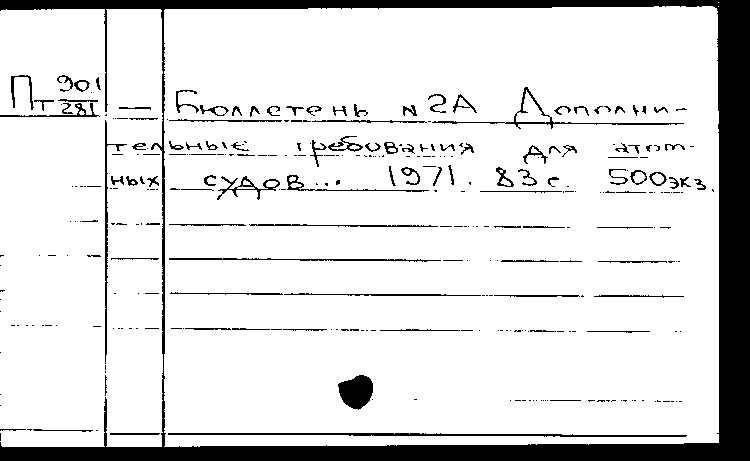 Пт 901/281 — Бюллетень №2А Дополни-
тельные требования для атом-
ных судов... 1971. 83 с. 500экз.